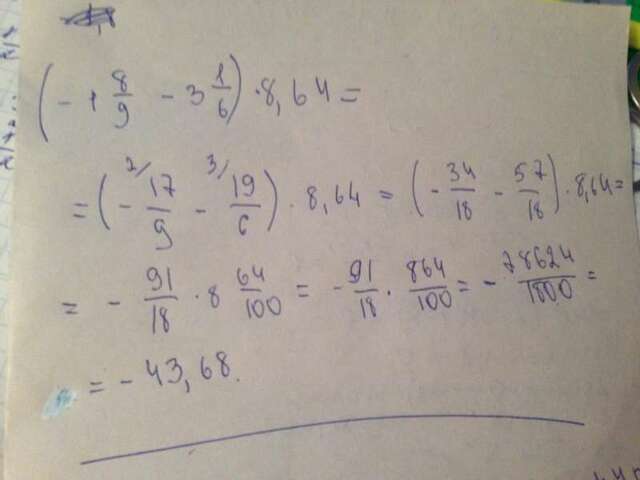 (-1 8/9 - 3 1/6) · 8,64 =
= (- 17/9 - 19/6) · 8,64 = (- 34/18 - 57/18) · 8,64 =
= - 91/18 · 8 64/100 = - 91/18 · 864/100 = - 78624/1800 =
= - 43,68.